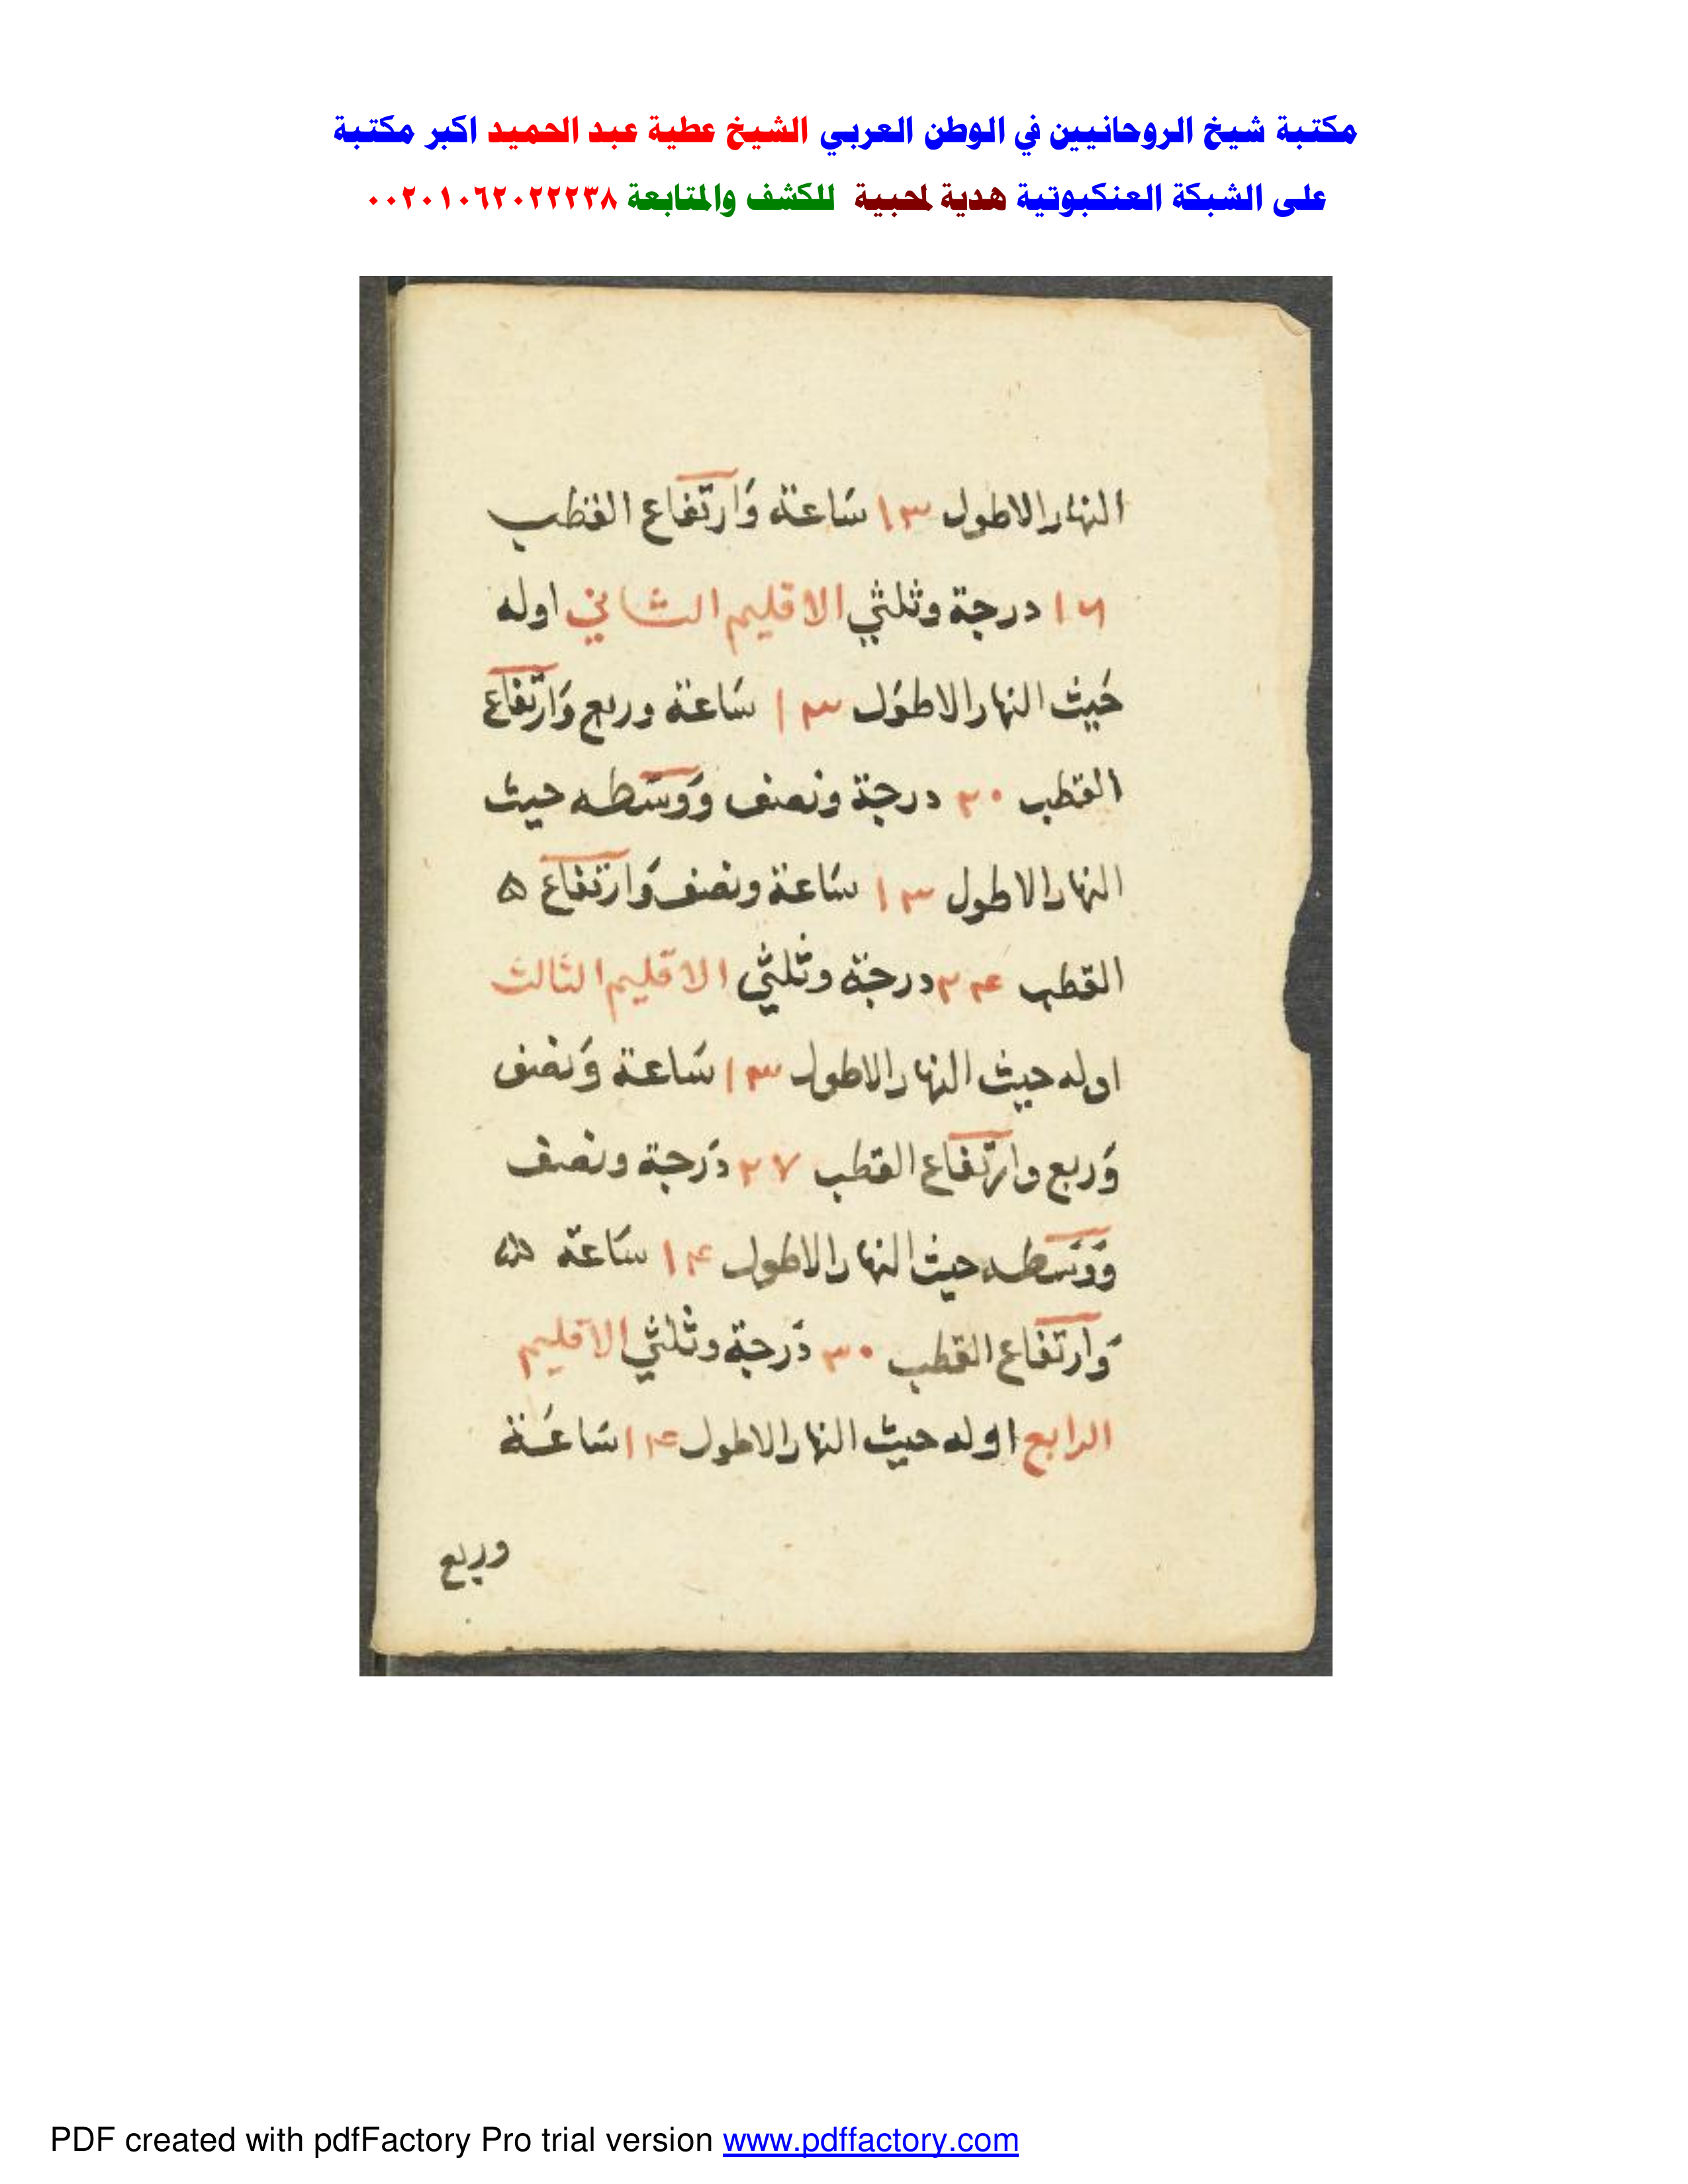 مكتبة شيخ الروحانيين في الوطن العربي الشيخ عطية عبد الحميد اكبر مكتبة
على الشبكة العنكبوتية هدية لمحبية للكشف والمتابعة ٠٠٢٠١٠٦٢٠٢٢٢٣٨
النهار الاطول ١٣ ساعة وَارتفاع القطب
١٦ درجة وثلثي الاقليم الثاني اوله
حَيث النهار الاطوَل ١٣ سَاعة وربع وَارتفاع
القطب ٢٠ درجة ونصف وَوسَطه حيث
النهار الاطول ١٣ سَاعة ونصف وَارتفاع ه
القطب ٢٤ درجة وثلثي الاقليم الثالث
اوله حيث النهار الاطول ١٣ سَاعة وَنصف
وَربع وارتفاع القطب ٢٧ دَرجة ونصف
وَوَسَطه حيث النهار الاطول ١٤ سَاعة
وَارتفاع القطب ٣٠ دَرجة وثلثي الاقليم
الرابع اوله حيث النهار الاطول ١٤ سَاعَة
وربع
PDF created with pdfFactory Pro trial version www.pdffactory.com